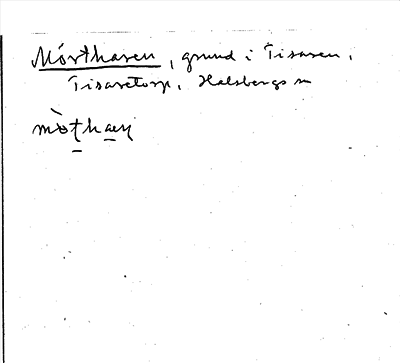 Mörtharen, grund i Tisaren,
Tisaretorp, Halsbergs sn
mò̀thaen